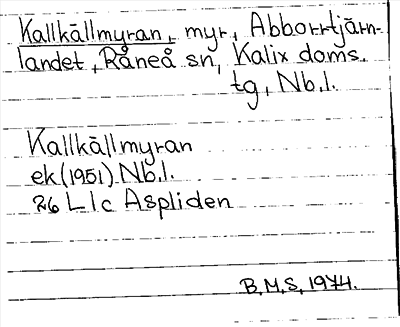 Kallkällmyran, myr, Abborrtjärn-
landet, Råneå sn, Kalix doms.
tg, Nb.l.
Kallkällmyran
ek(1951) Nb.l.
26 L1c Aspliden
B.M.S, 1974.